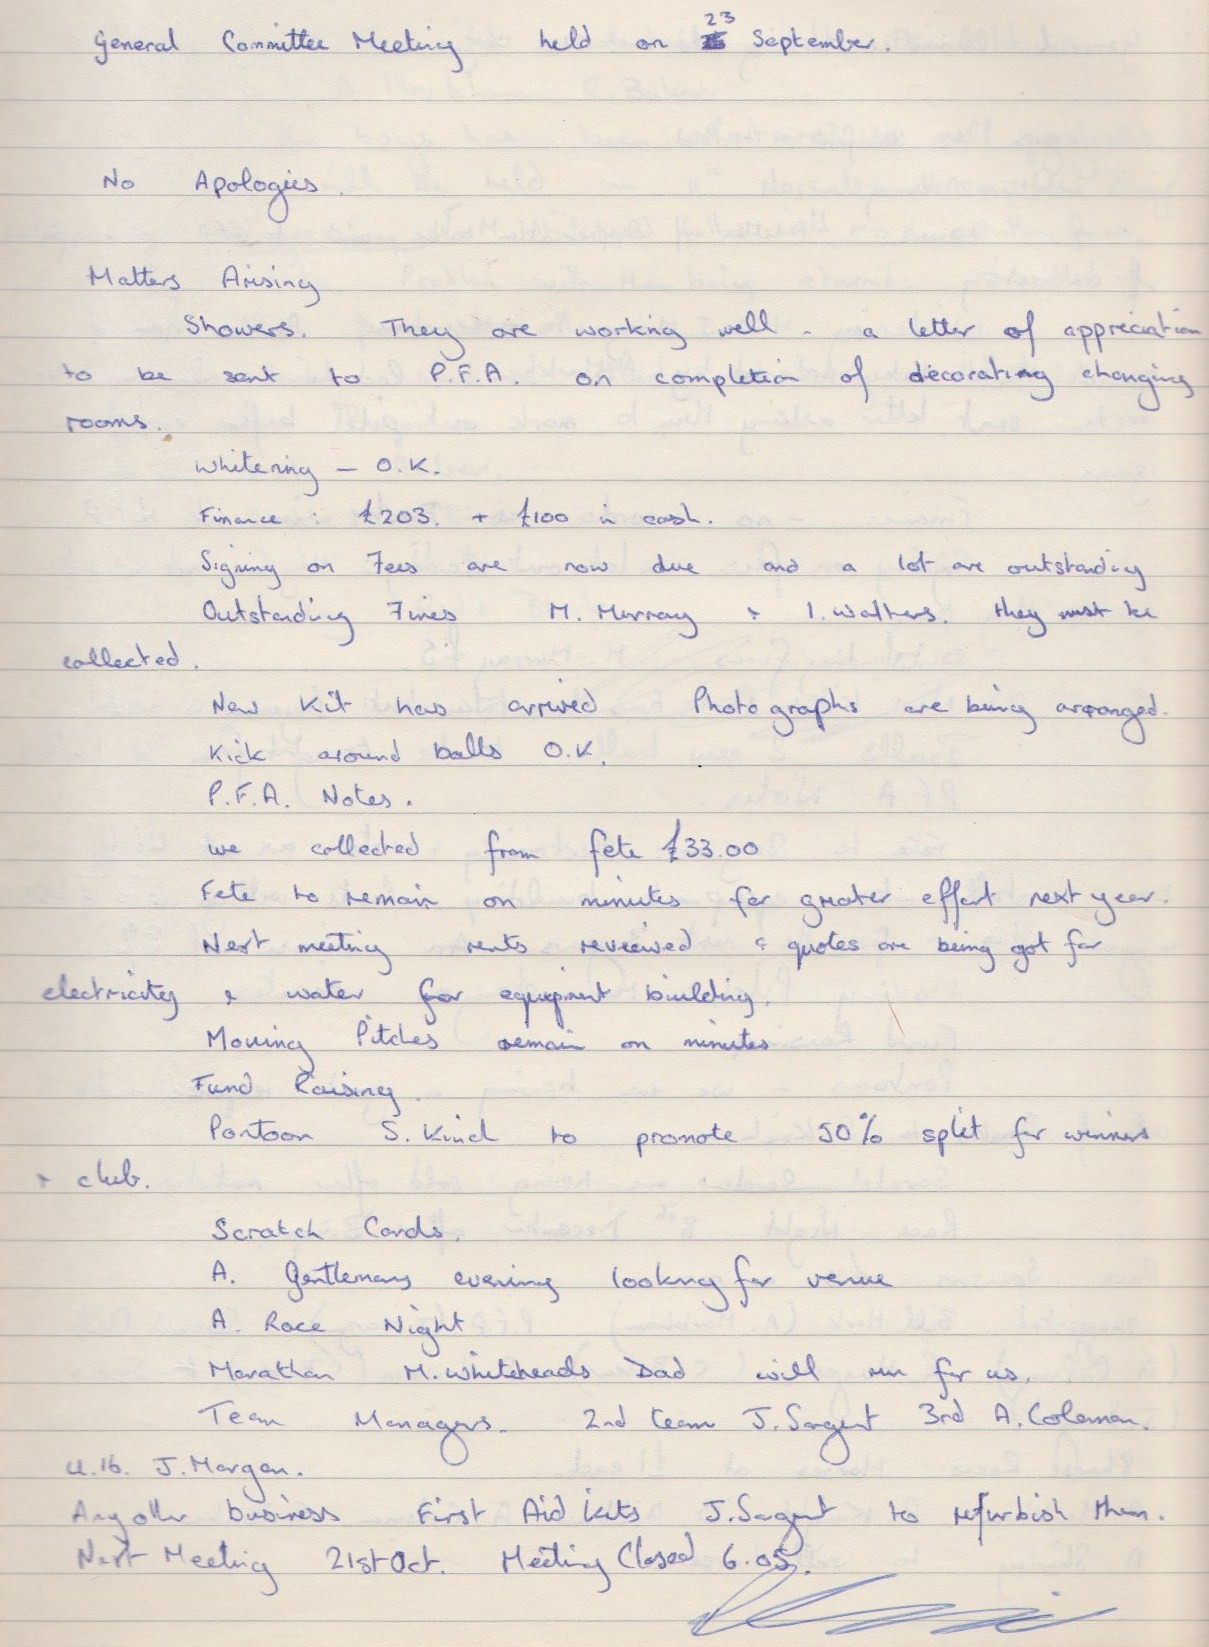 General Committee Meeting held on 23 September.
No Apologies.
Matters Arising
Showers. They are working well - a letter of appreciation
to be sent to P.F.A. on completion of decorating changing
rooms.
Whitening - O.K.
Finance : £203. + £100 in cash.
Signing on Fees are now due and a lot are outstanding
Outstanding Fines M. Murray + I. Walters. they must be
collected.
New Kit has arrived Photographs are being arranged.
Kick around balls O.K.
P.F.A. Notes.
we collected from fete £33.00
Fete to remain on minutes for greater effort next year.
Next meeting rents reveiwed & quotes are being got for
electricity & water for equipment building.
Moving Pitches remain on minutes
Fund Raising.
Pontoon S. Kind to promote 50% split for winners
+ club.
Scratch Cards.
A. Gentlemans evening looking for venue
A. Race Night
Marathon M. Whiteheads Dad will run for us.
Team Managers. 2nd team J. Sargent 3rd A. Coleman.
U.16. J. Morgan.
Any other business First Aid Kits J. Sargent to refurbish them.
Next Meeting 21st Oct. Meeting Closed 6.05.